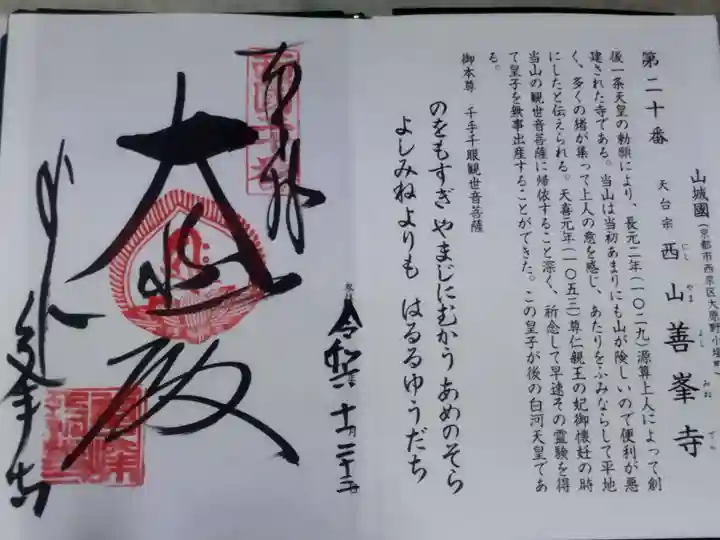 山城國(京都市西京区大原野小塩町)
第二十番 天台宗 西山善峯寺
にし やま よし みね でら
後一条天皇の勅願により、長元二年(一〇二九)源算上人によって創
建された寺である。当山は当初あまりにも山が険しいので便利が悪
く、多くの猪が集って上人の意を感じ、あたりをふみならして平地
にしたと伝えられる。天喜元年(一〇五三)尊仁親王の妃御懐妊の時
当山の観世音菩薩に帰依すること深く、祈念して早速その霊験を得
て皇子を無事出産することができた。この皇子が後の白河天皇であ
る。
御本尊 千手千眼観世音菩薩
のをもすぎ やまじにむかう あめのそら
よしみねよりも はるるゆうだち
奉拝
大悲殿
令和六 十月二十二
善峯寺